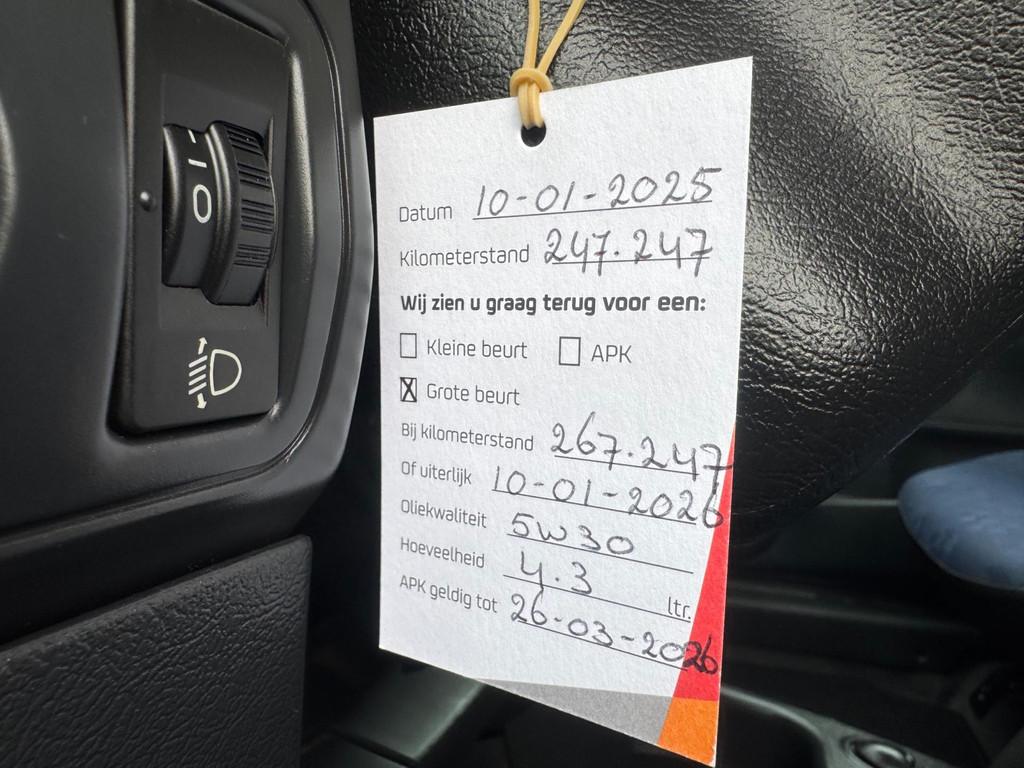 0
Datum 10-01-2025
Kilometerstand 247.247
Wij zien u graag terug voor een:
Kleine beurt APK
X Grote beurt
Bij kilometerstand 267.247
Of uiterlijk 10-01-2026
Oliekwaliteit 5W30
Hoeveelheid 4.3 ltr.
APK geldig tot 26-03-2026